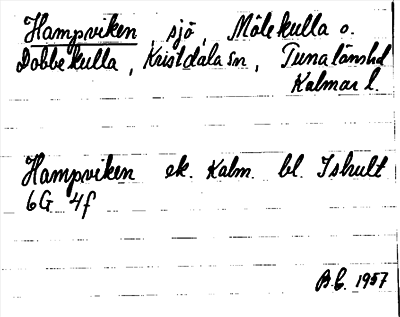 Hampviken sjö, Mölekulla o.
Dobbekulla, Kristdala sn, Tunalänshd
Kalmar l.
Hampviken ek. Kalm. bl. Ishult
6G 4f
B.E. 1957